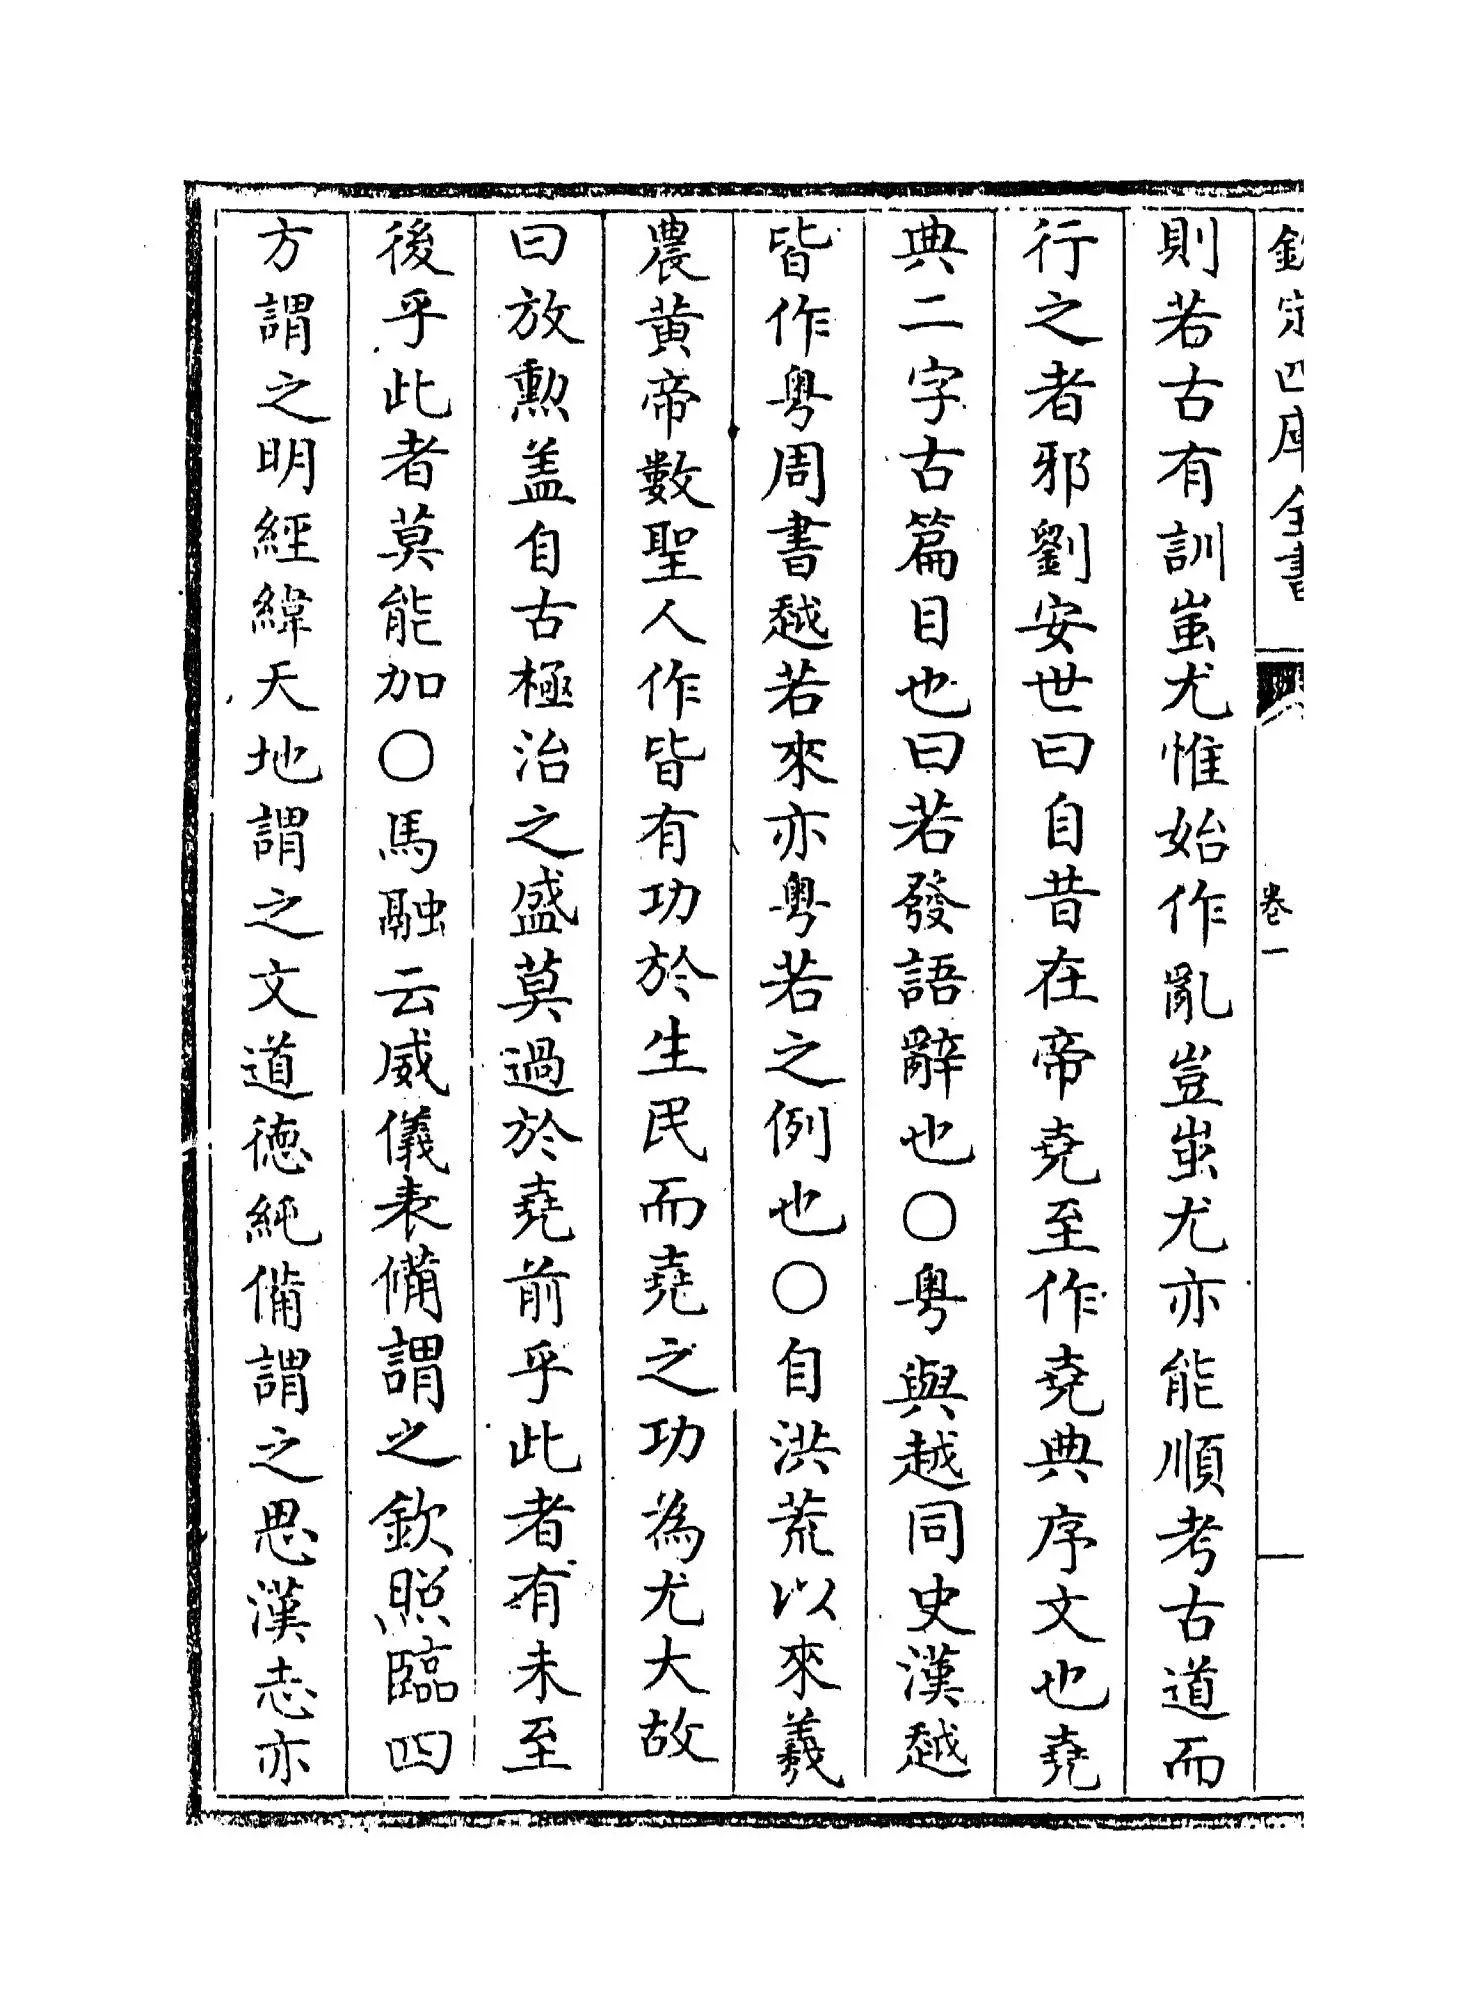 欽定四庫全書 卷一
則若古有訓蚩尤惟始作亂豈蚩尤亦能順考古道而
行之者邪劉安世曰自昔在帝堯至作堯典序文也堯
典二字古篇目也曰若發語辭也○粤與越同史漢越
皆作粤周書越若來亦粤若之例也○自洪荒以來羲
農黄帝數聖人作皆有功於生民而堯之功為尤大故
曰放勲盖自古極治之盛莫過於堯前乎此者有未至
後乎此者莫能加○馬融云威儀表備謂之欽照臨四
方謂之明經緯天地謂之文道徳純備謂之思漢志亦